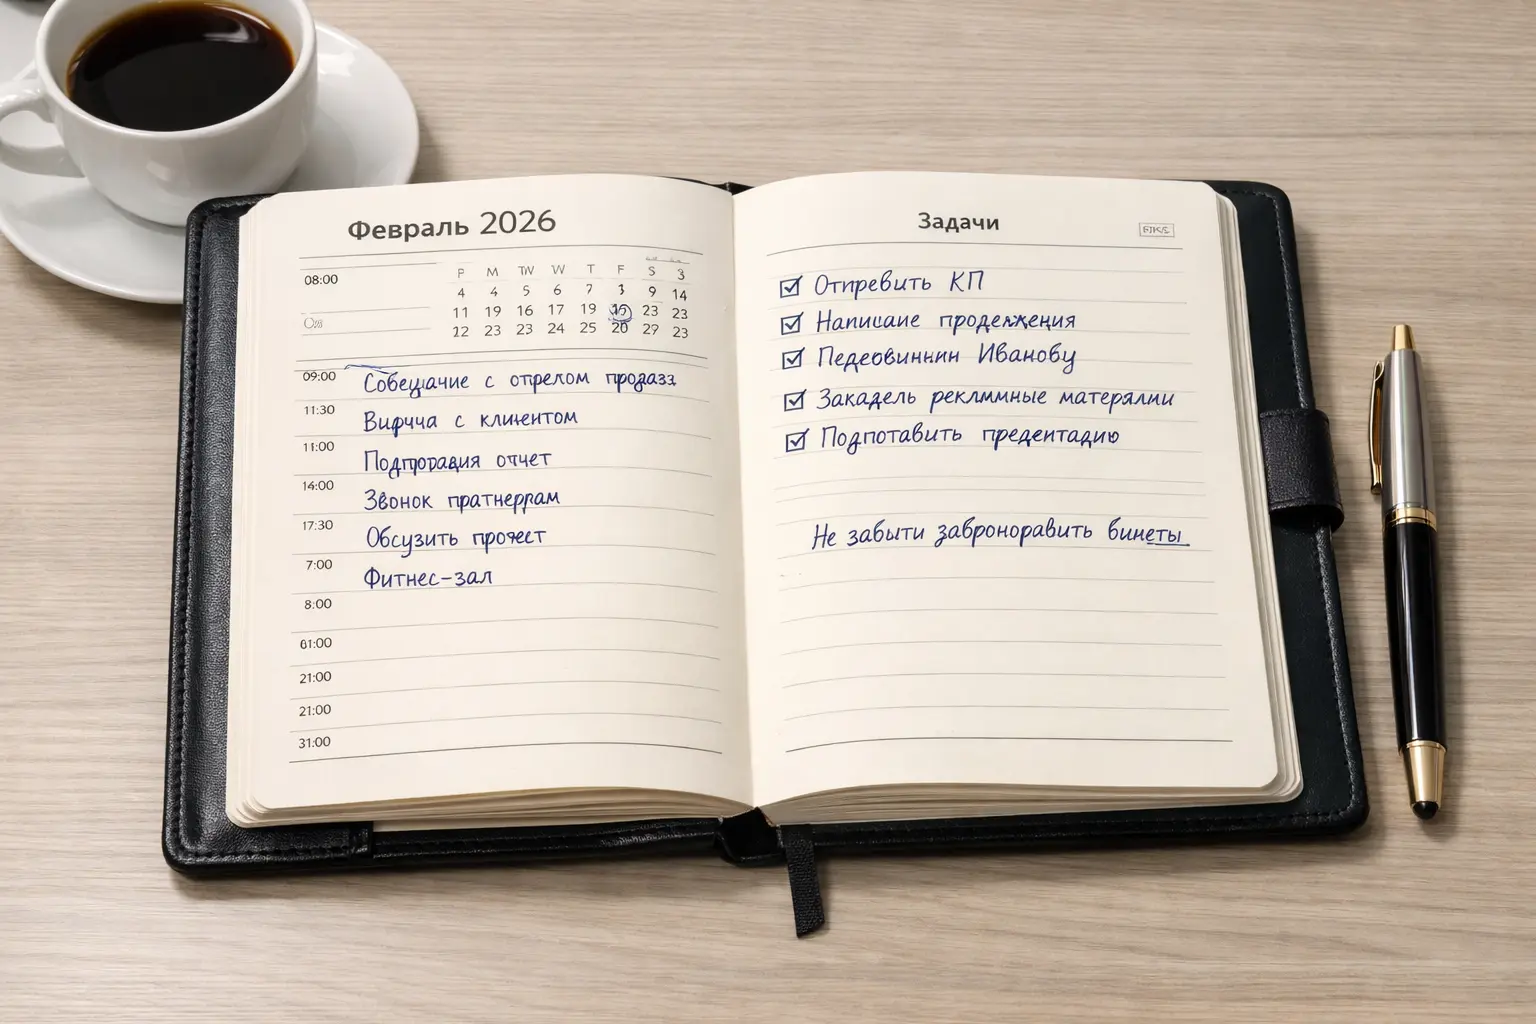 Февраль 2026
08:00
P M TW W T F S 3
4 4 5 6 7 3 9 14
11 19 16 17 19 15 23 23
12 23 23 24 25 20 29 23
09:00 Собещачие с отрелом продазз
11:30 Вирчча с клинентом
11:00 Подпрорадия отчет
14:00 Звонок пратнеррам
17:30 Обсузить прочест
7:00 Фитнес-зал
8:00
01:00
21:00
21:00
31:00
Задачи
Отпревить КП
Написаие проделжения
Педеовиннин Иванову
Закадель реклммные матерялии
Подпотавить предентадию
Не забыти заброноравить бинеты